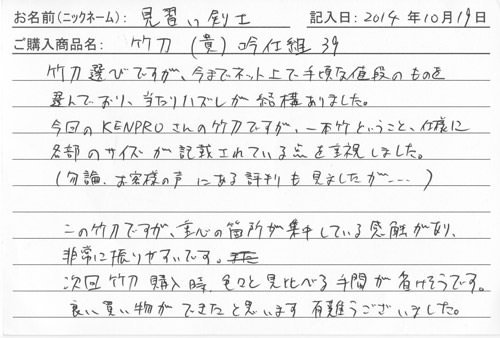 お名前(ニックネーム): 見習い剣士 記入日: 2014年10月19日
ご購入商品名: 竹刀 (貴) 吟仕組 39
竹刀選びですが、今までネット上で手頃な値段のものを
選んでおり、当たりハズレが結構ありました。
今回のKENPROさんの竹刀ですが、一本竹ということ、仕様に
各部のサイズが記載されている点を重視しました。
(勿論、お客様の声にある評判も見ましたが……)
この竹刀ですが、重心の箇所が集中している感触があり、
非常に振りやすいです。
次回竹刀購入時、色々と見比べる手間が省けそうです。
良い買い物ができたと思います 有難うございました。